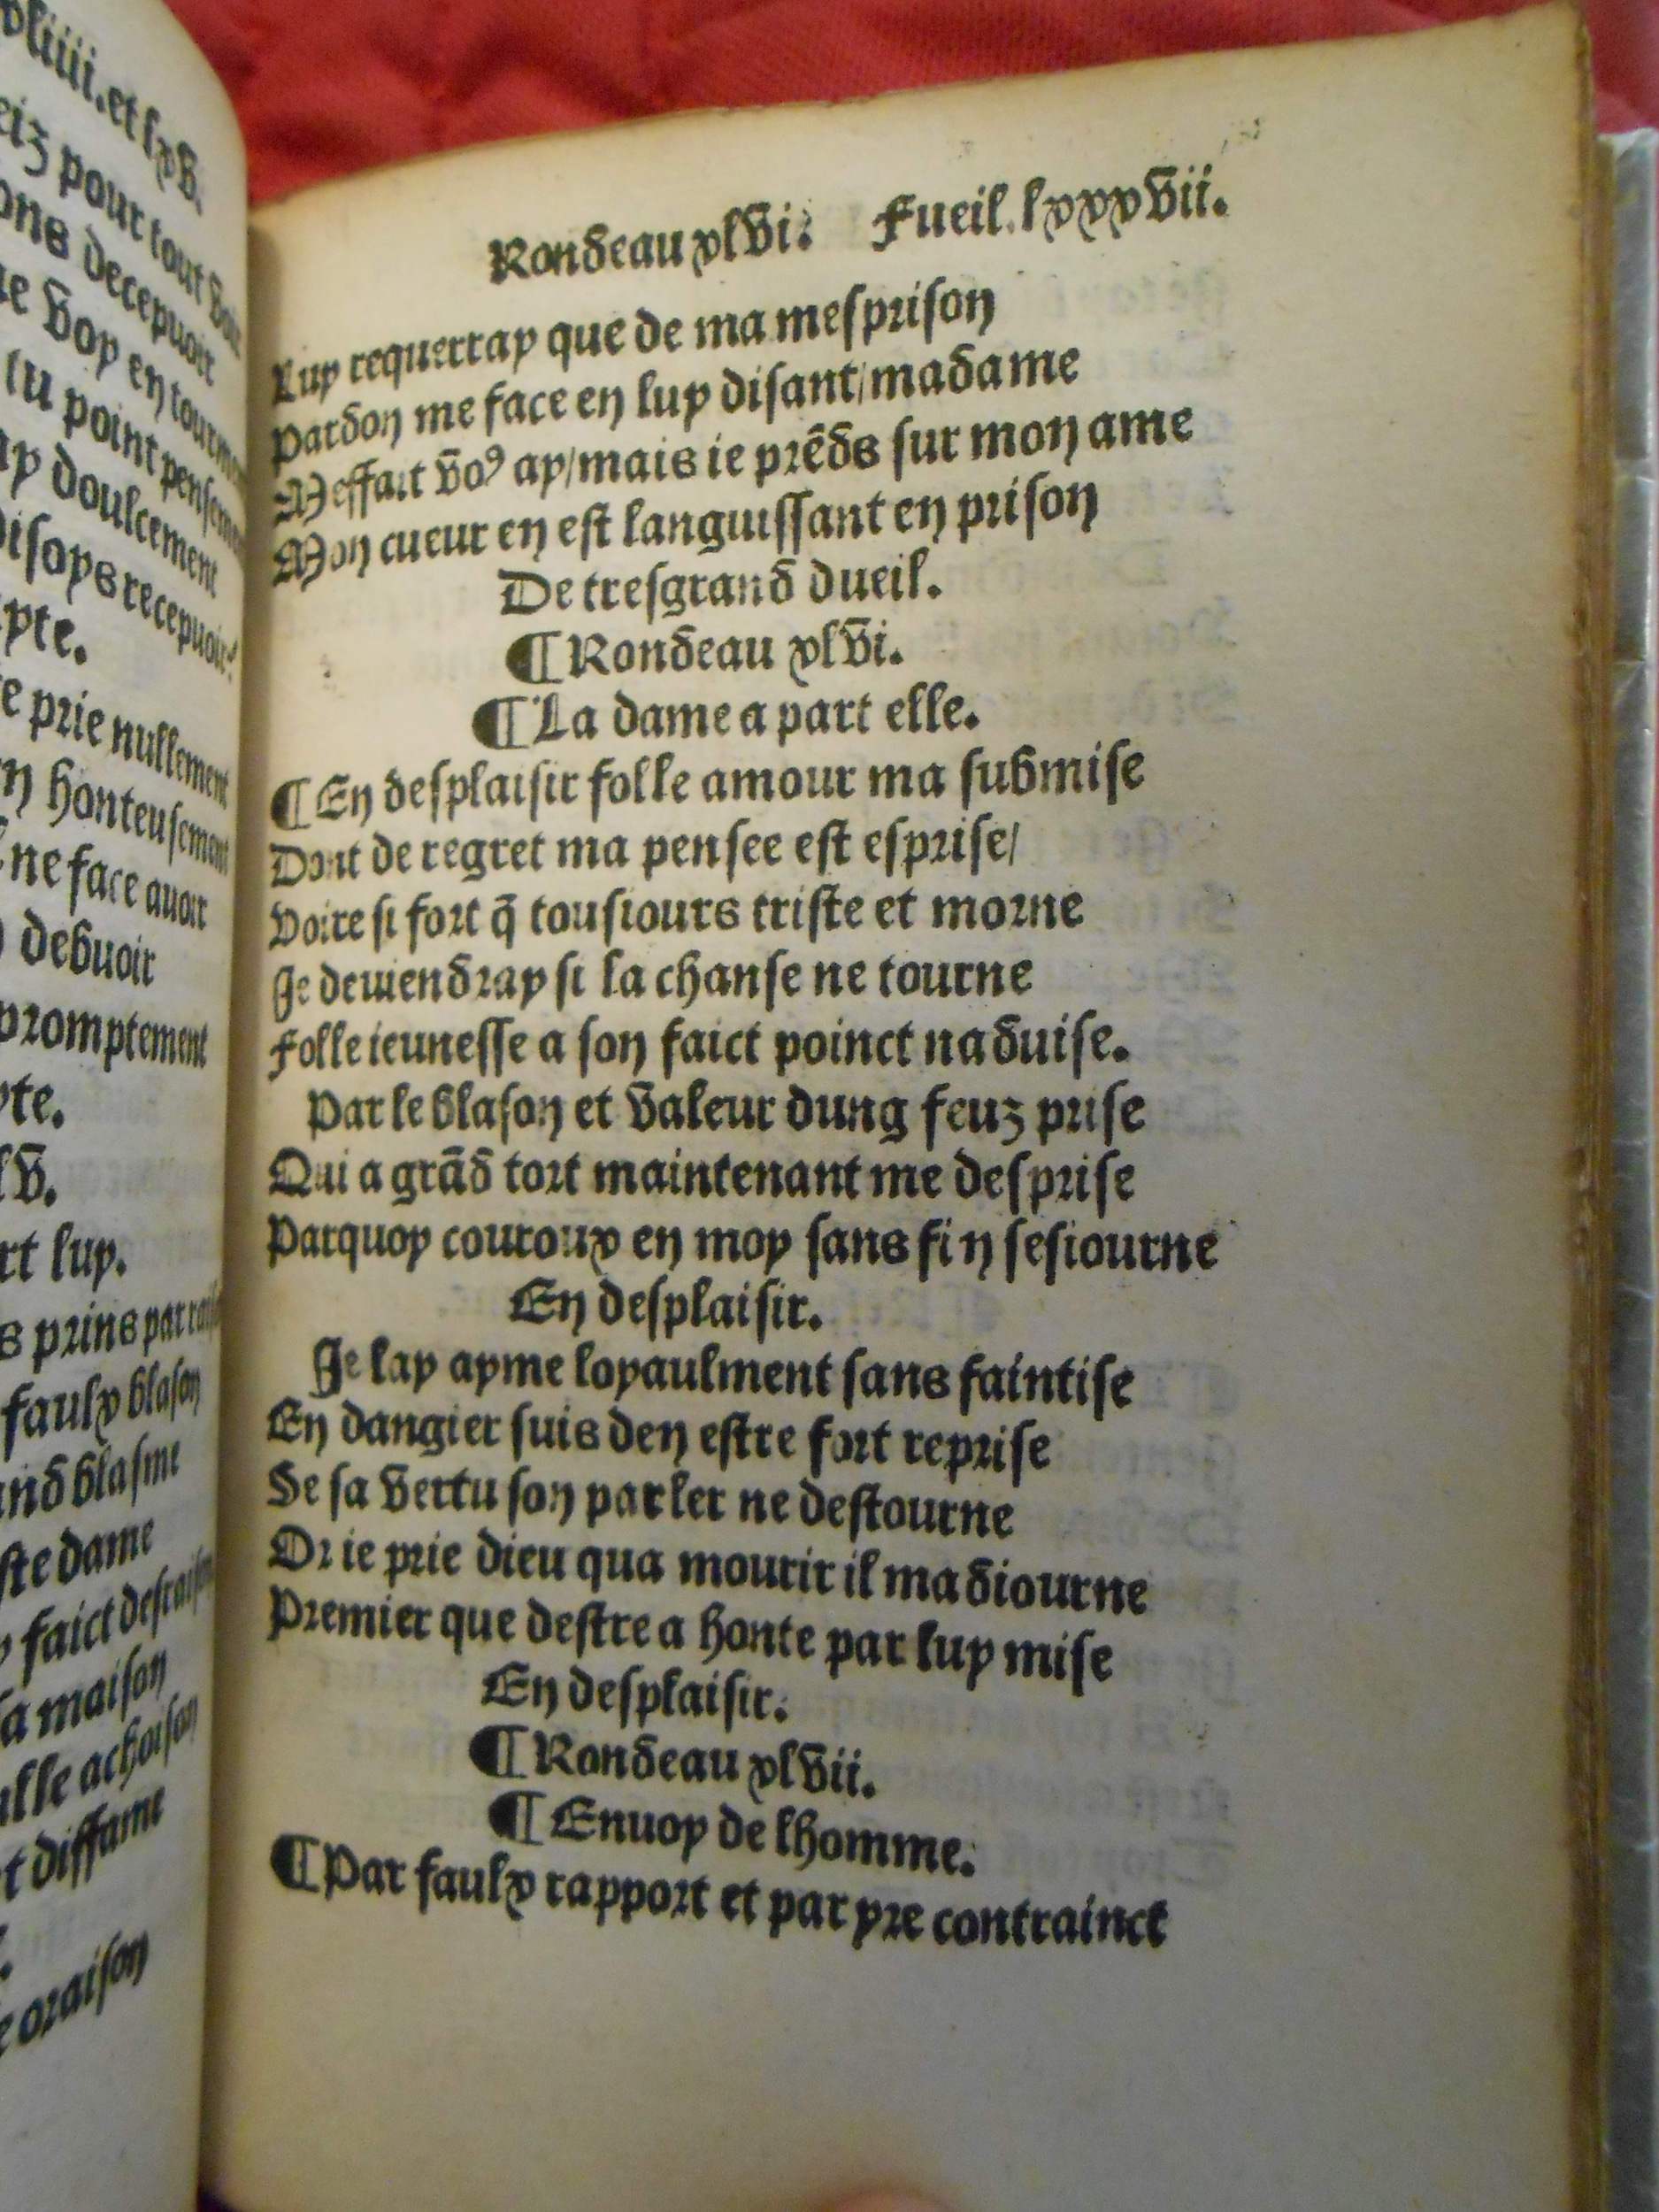 xliiii. et xlv.
eiz pour tout
ons decepuoir
ue voy en
tu point
ay doulcement
disoys recepuoir
pte.
e prie nullement
n honteusement
ne face auoir
debuoir
promptement
pte.
lv.
rt luy.
s prins par
faulx blason
and blasme
ste dame
faict
sa maison
ulle achoison
t diffame
oraison
Rondeau xlvi. Fueil. lxxxvii.
Luy requerray que de ma mesprison
Pardon me face en luy disant/madame
Meffait vo⁹ ay/mais ie prẽds sur mon ame
Mon cueur en est languissant en prison
De tresgrand dueil.
¶ Rondeau xlvi.
¶ La dame a part elle.
¶ En desplaisir folle amour ma submise
Dont de regret ma pensee est esprise/
Voire si fort q̃ tousiours triste et morne
Je deuiendray si la chanse ne tourne
Folle ieunesse a son faict poinct naduise.
Par le blason et valeur dung feuz prise
Qui a grãd tort maintenant me desprise
Parquoy couroux en moy sans fin sesiourne
En desplaisir.
Je lay ayme loyaulment sans faintise
En dangier suis den estre fort reprise
Se sa vertu son parler ne destourne
Or ie prie dieu qua mourir il madiourne
Premier que destre a honte par luy mise
En desplaisir.
¶ Rondeau xlvii.
¶ Enuoy de lhomme.
¶ Par faulx rapport et par yre contrainct